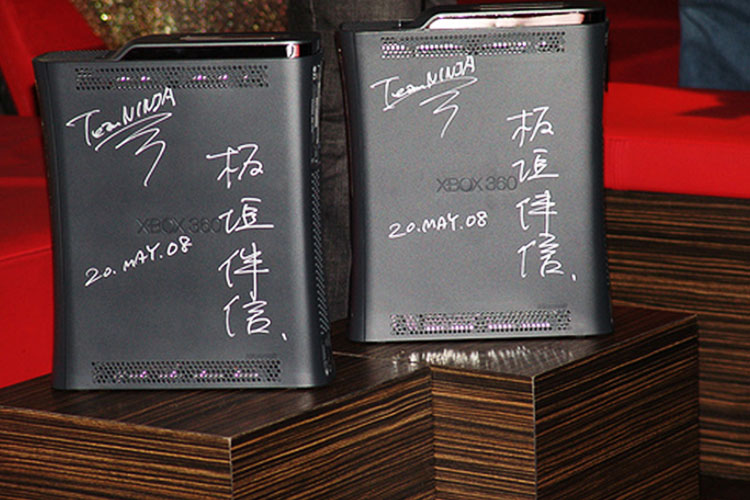 Team NINJA
XBOX 360
板垣伴信
20.MAY.08
Team NINJA
XBOX 360
板垣伴信
20.MAY.08